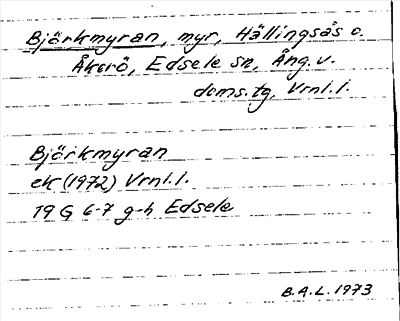 Björkmyran, myr, Hällingsås o.
Åkerö, Edsele sn, Ång. v.
doms.tg, Vrnl.l.
Björkmyran
ek (1972) Vrnl.l.
19 G 6-7 g-h Edsele
B.A.L. 1973